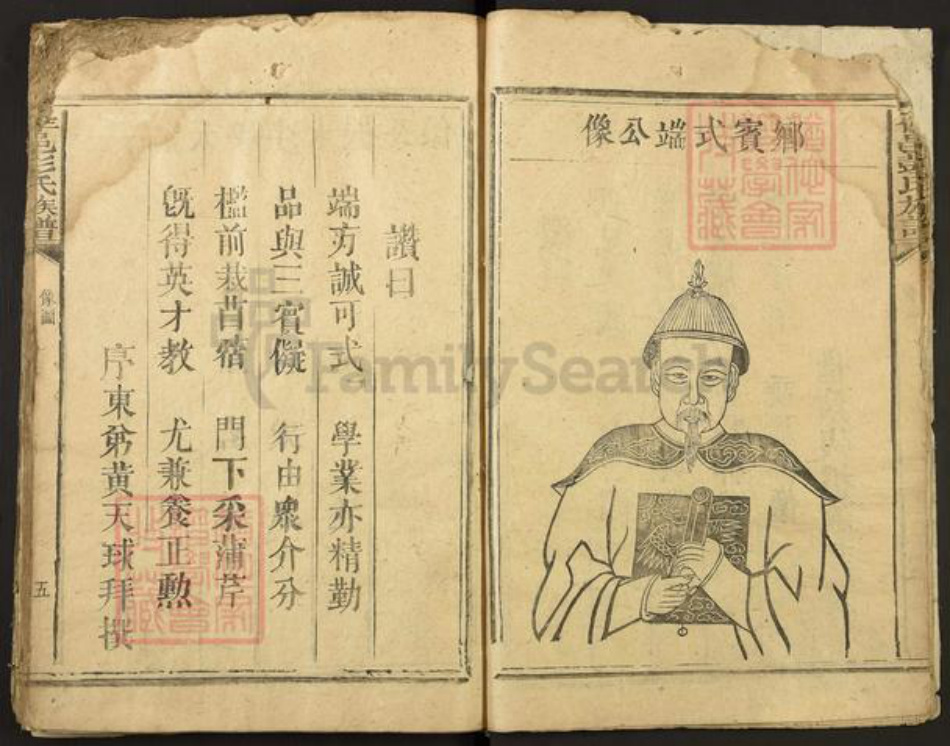 鄉賓式端公像
讚曰
端方誠可式 學業亦精勤
品與三賓儗 行由衆介分
檻前栽苜蓿 門下采蒲芹
旣得英才教 尤兼養正勲
序東弟黃天球拜撰
邑彭氏族譜
像圖
五
FamilySearch